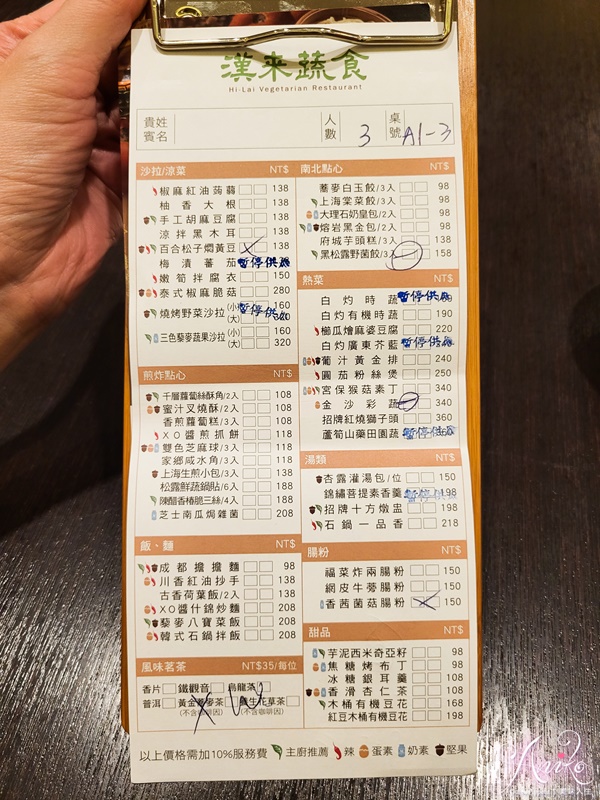 漢來蔬食
Hi-Lai Vegetarian Restaurant
貴姓賓名 人數 3 桌號 A1-3
沙拉/涼菜 NT$
椒麻紅油蒟蒻 138
柚香大根 138
手工胡麻豆腐 138
涼拌黑木耳 138
百合松子燜黃豆 138
梅漬蕃茄 暫停供應
嫩筍拌腐衣 150
泰式椒麻脆菇 280
燒烤野菜沙拉 (小) 160
(大) 320 暫停供應
三色藜麥蔬果沙拉 (小) 160
(大) 320
煎炸點心 NT$
千層蘿蔔絲酥角/2入 108
蜜汁叉燒酥/2入 108
香煎蘿蔔糕/3入 108
XO醬煎抓餅 118
雙色芝麻球/3入 118
家鄉咸水角/3入 118
上海生煎小包/3入 138
松露鮮蔬鍋貼/6入 188
陳醋香椿脆三絲/4入 188
芝士南瓜焗雜菌 208
飯、麵 NT$
成都擔擔麵 98
川香紅油抄手 138
古香荷葉飯/2入 138
XO醬什錦炒麵 208
藜麥八寶菜飯 208
韓式石鍋拌飯 208
風味茗茶 NT$35/每位
香片 鐵觀音 烏龍茶
普洱 黃金蕎麥茶 養生花草茶
(不含咖啡因) (不含咖啡因)
南北點心 NT$
蕎麥白玉餃/3入 98
上海棠菜餃/3入 98
大理石奶皇包/2入 98
熔岩黑金包/2入 98
府城芋頭糕/3入 138
黑松露野菌餃/3入 158
熱菜 NT$
白灼時蔬 暫停供應
白灼有機時蔬 190
櫛瓜燴麻婆豆腐 220
白灼廣東芥藍 暫停供應
葡汁黃金排 240
圓茄粉絲煲 250
宮保猴菇素丁 340
金沙彩蔬 340
招牌紅燒獅子頭 360
蘆筍山藥田園蔬 暫停供應
湯類 NT$
杏露灌湯包/位 150
錦繡菩提素香羹 198 暫停供應
招牌十方燉盅 198
石鍋一品香 218
腸粉 NT$
福菜炸兩腸粉 150
網皮牛蒡腸粉 150
香茜菌菇腸粉 150
甜品 NT$
芋泥西米奇亞籽 98
焦糖烤布丁 98
冰糖銀耳羹 108
香滑杏仁茶 108
木桶有機豆花 168
紅豆木桶有機豆花 198
以上價格需加10%服務費 主廚推薦 辣 蛋素 奶素 堅果